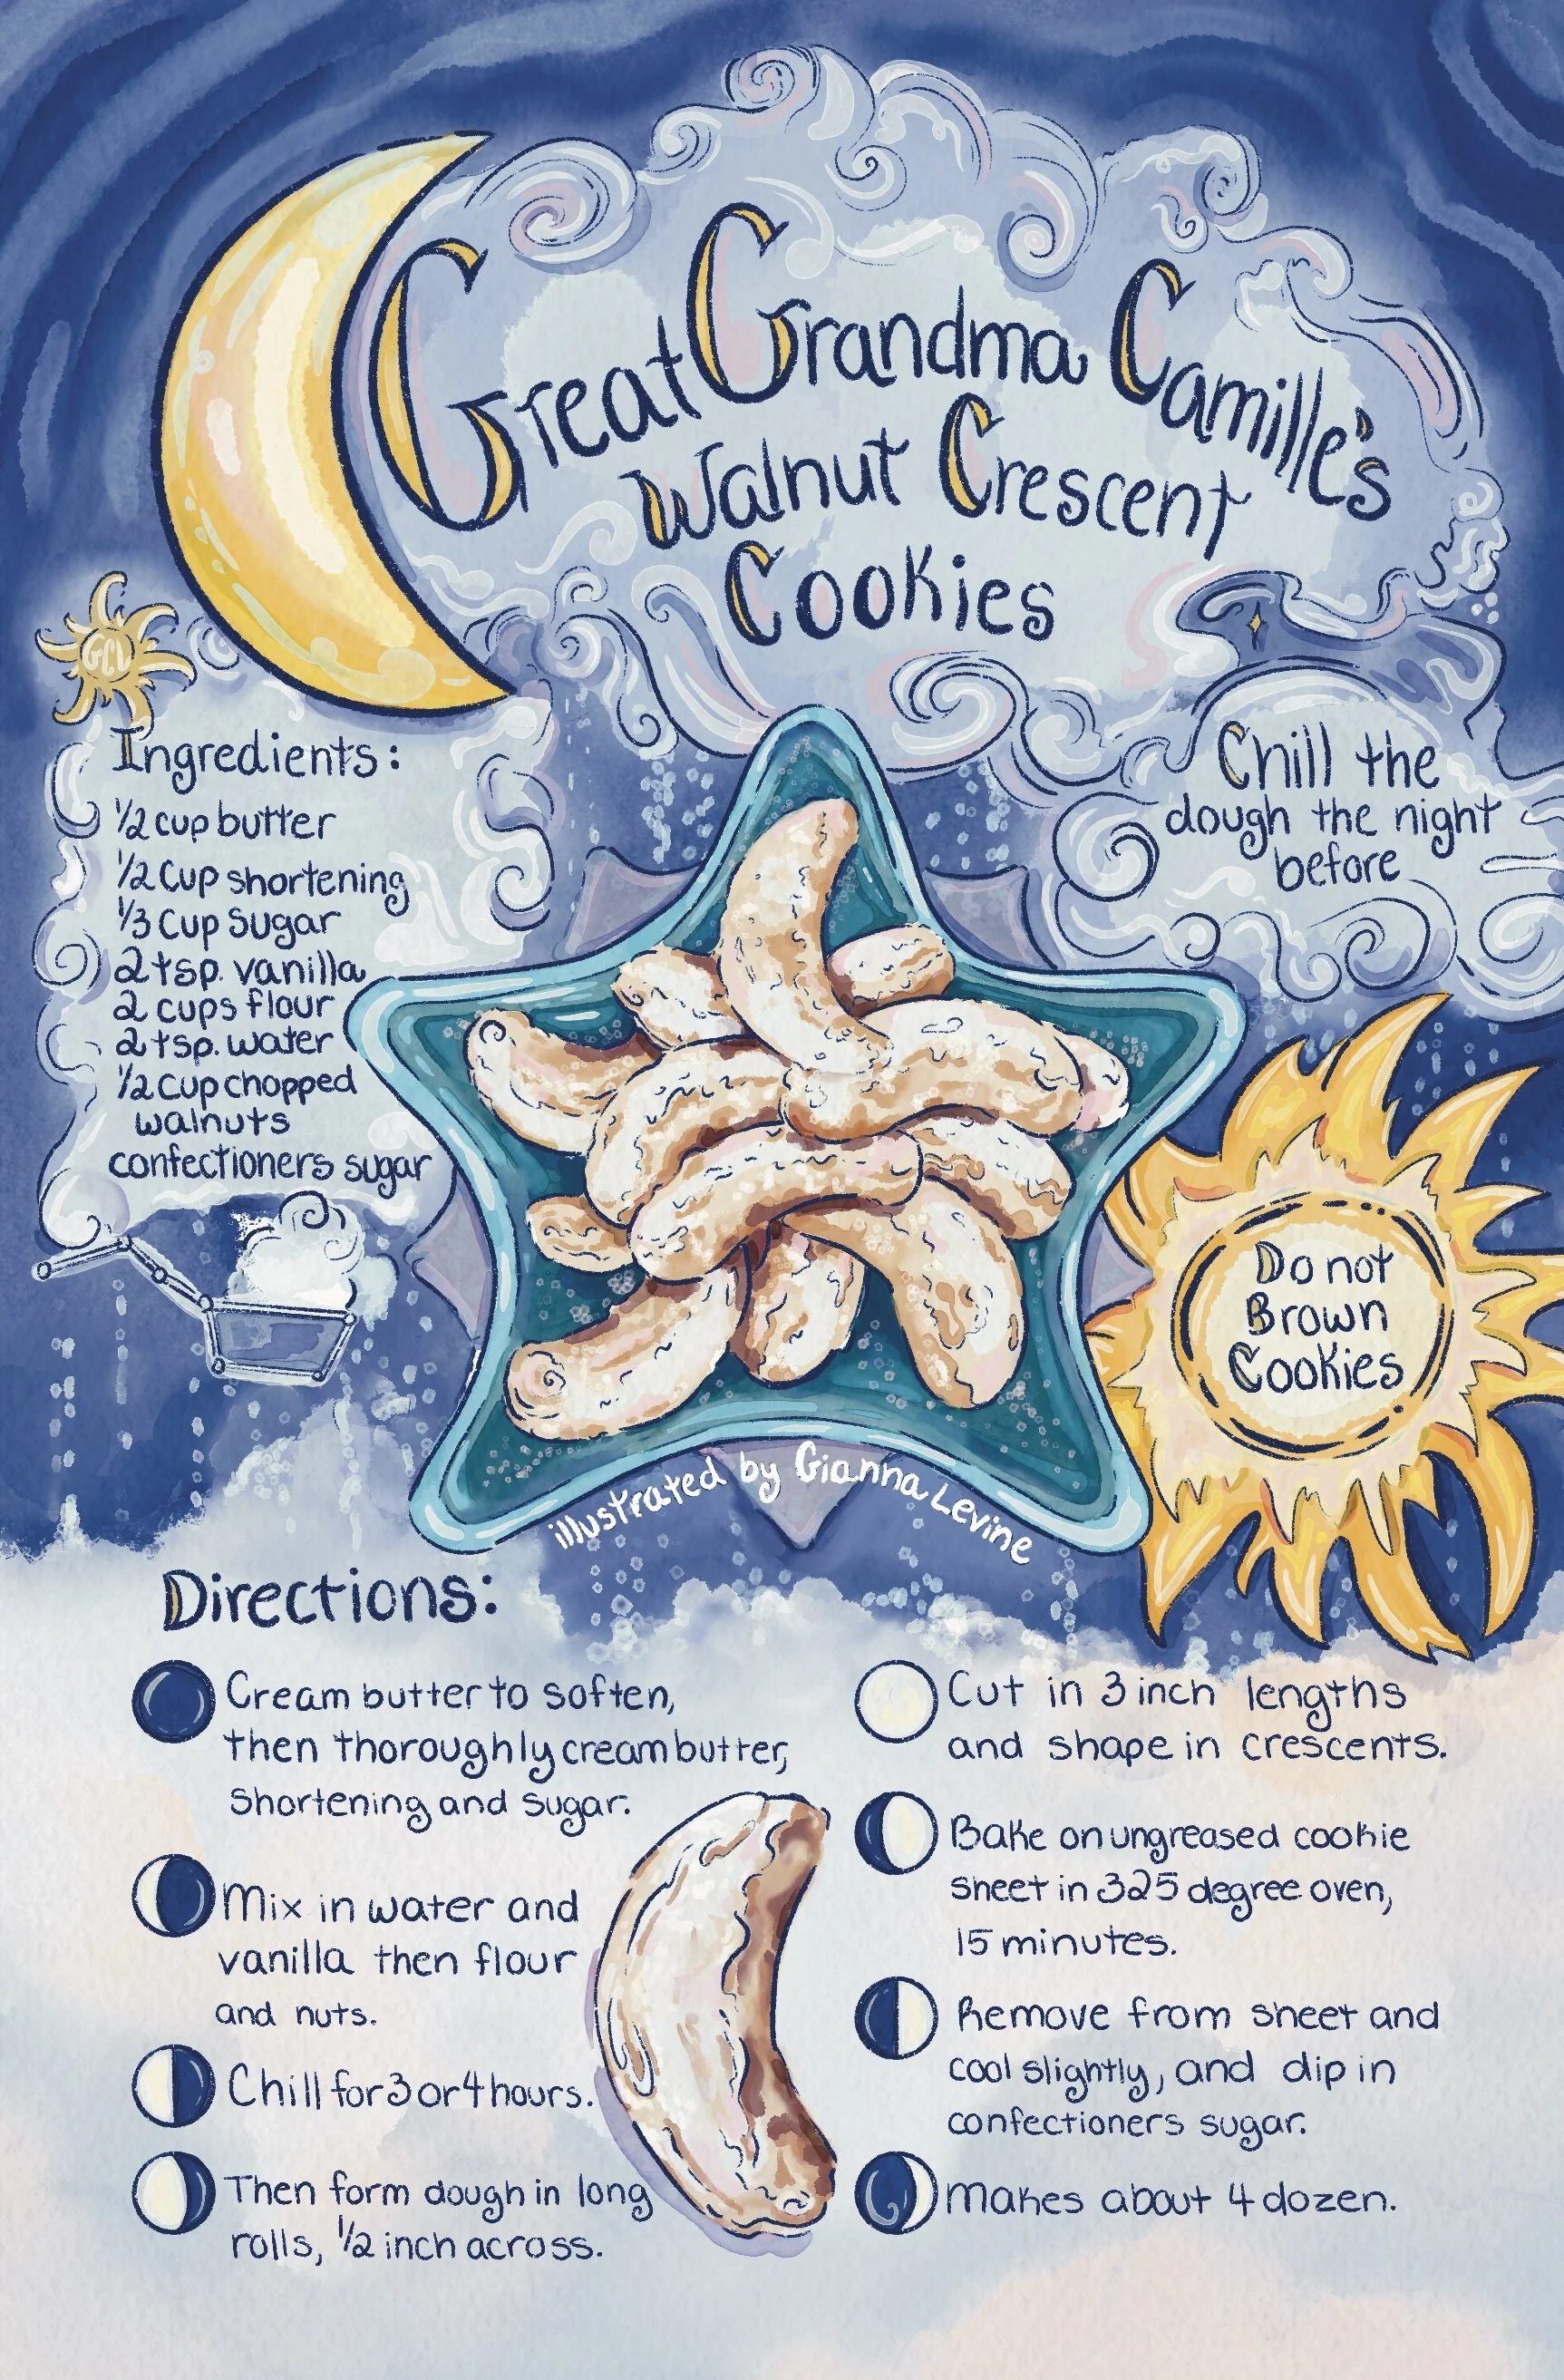 Great Grandma Camille's
Walnut Crescent
Cookies
GCL
Ingredients:
1/2 cup butter
1/2 Cup shortening
1/3 Cup Sugar
2 tsp. vanilla
2 cups flour
2 tsp. water
1/2 Cup chopped
walnuts
confectioners sugar
Chill the
dough the night
before
Do not
Brown
Cookies
illustrated by Gianna Levine
Directions:
Cream butter to soften,
then thoroughly cream butter,
Shortening and sugar.
Mix in water and
vanilla then flour
and nuts.
Chill for 3 or 4 hours.
Then form dough in long
rolls, 1/2 inch across.
Cut in 3 inch lengths
and shape in crescents.
Bake on ungreased cookie
sheet in 325 degree oven,
15 minutes.
Remove from sheet and
cool slightly, and dip in
confectioners sugar.
Makes about 4 dozen.